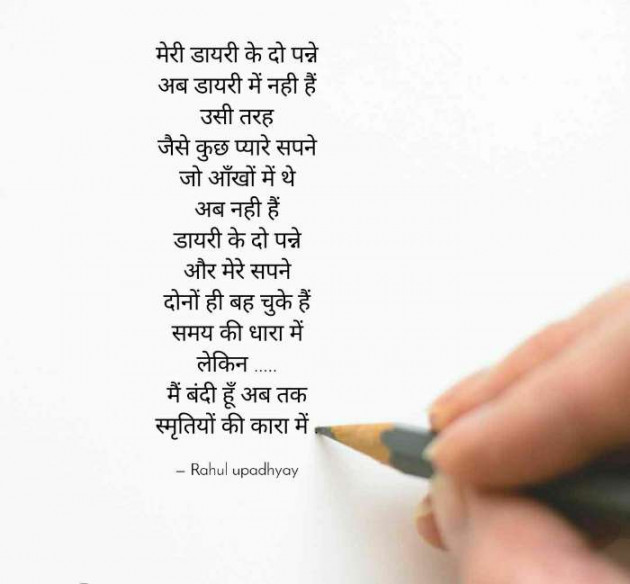 मेरी डायरी के दो पन्ने
अब डायरी में नही हैं
उसी तरह
जैसे कुछ प्यारे सपने
जो आँखों में थे
अब नही हैं
डायरी के दो पन्ने
और मेरे सपने
दोनों ही बह चुके हैं
समय की धारा में
लेकिन .....
मैं बंदी हूँ अब तक
स्मृतियों की कारा में
– Rahul upadhyay